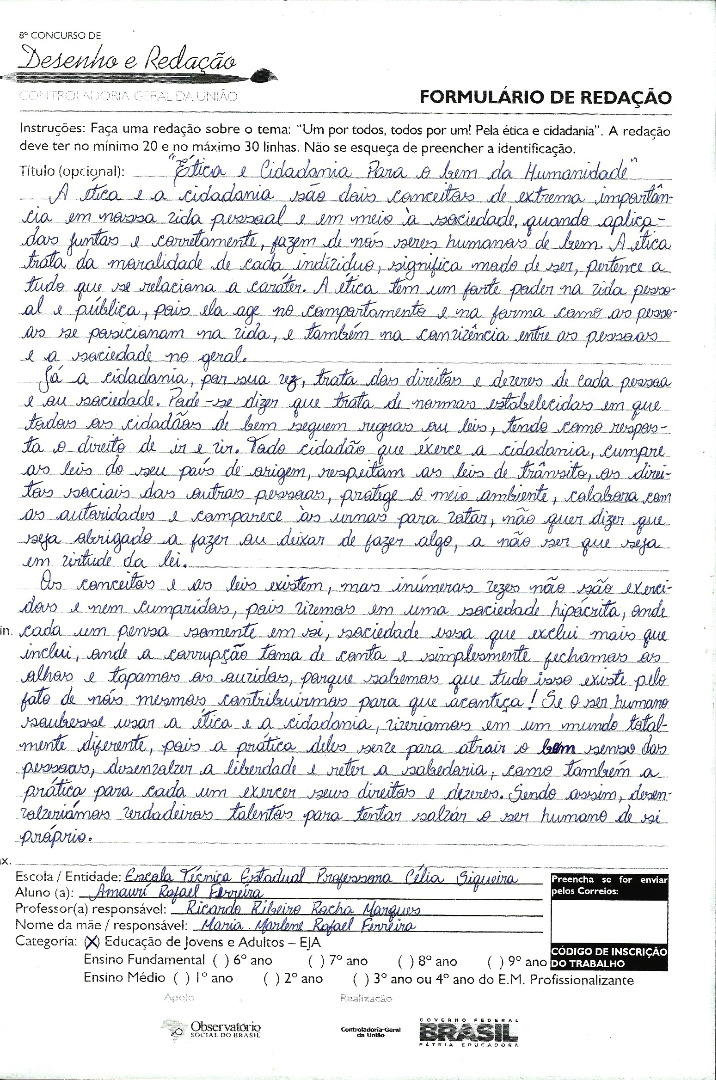 8º CONCURSO DE
Desenho e Redação
CONTROLADORIA GERAL DA UNIÃO
FORMULÁRIO DE REDAÇÃO
Instruções: Faça uma redação sobre o tema: "Um por todos, todos por um! Pela ética e cidadania". A redação
deve ter no mínimo 20 e no máximo 30 linhas. Não se esqueça de preencher a identificação.
Título (opcional): "Ética e Cidadania Para o bem da Humanidade"
A ética e a cidadania são dois conceitos de extrema importân-
cia em nossa vida pessoal e em meio à sociedade, quando aplica-
das juntas e corretamente, fazem de nós seres humanos de bem. A ética
trata da moralidade de cada indivíduo, significa modo de ser, pertence a
tudo que se relaciona a caráter. A ética tem um forte poder na vida pesso-
al e pública, pois ela age no comportamento e na forma como as pesso-
as se posicionam na vida, e também na convivência entre as pessoas
e a sociedade no geral.
Já a cidadania, por sua vez, trata dos direitos e deveres de cada pessoa
e ou sociedade. Pode-se dizer que trata de normas estabelecidas em que
todos os cidadãos de bem seguem regras ou leis, tendo como respos-
ta o direito de ir e vir. Todo cidadão que éxerce a cidadania, cumpre
as leis do seu país de origem, respeitam as leis de trânsito, os direi-
tos sociais das outras pessoas, protege o meio ambiente, colabora com
as autoridades e comparece às urnas para votar, não quer dizer que
seja obrigado a fazer ou deixar de fazer algo, a não ser que seja
em virtude da lei.
Os conceitos e as leis existem, mas inúmeras vezes não são exerci-
dos e nem cumpridos, pois vivemos em uma sociedade hipócrita, onde
in. cada um pensa somente em si, sociedade essa que exclui mais que
inclui, onde a corrupção toma de conta e simplesmente fechamos os
olhos e tapamos os ouvidos, porque sabemos que tudo isso existe pelo
fato de nós mesmos contribuirmos para que aconteça! Se o ser humano
soubesse usar a ética e a cidadania, viveríamos em um mundo total-
mente diferente, pois a prática deles serve para atrair o bom senso das
pessoas, desenvolver a liberdade e reter a sabedoria, como também a
prática para cada um exercer seus direitos e deveres. Sendo assim, desen-
volveríamos verdadeiros talentos para tentar salvar o ser humano de si
próprio.
x.
Escola / Entidade: Escola Técnica Estadual Professora Célia Siqueira
Aluno (a): Amauri Rafael Ferreira
Professor(a) responsável: Ricardo Ribeiro Rocha Marques
Nome da mãe / responsável: Maria Marlene Rafael Ferreira
Categoria: (X) Educação de Jovens e Adultos – EJA
Ensino Fundamental ( ) 6º ano ( ) 7º ano ( ) 8º ano ( ) 9º ano
Ensino Médio ( ) 1º ano ( ) 2º ano ( ) 3º ano ou 4º ano do E.M. Profissionalizante
Preencha se for enviar
pelos Correios:
CÓDIGO DE INSCRIÇÃO
DO TRABALHO
Apoio
Realização
Observatório
SOCIAL DO BRASIL
Controladoria-Geral
da União
GOVERNO FEDERAL
BRASIL
PÁTRIA EDUCADORA